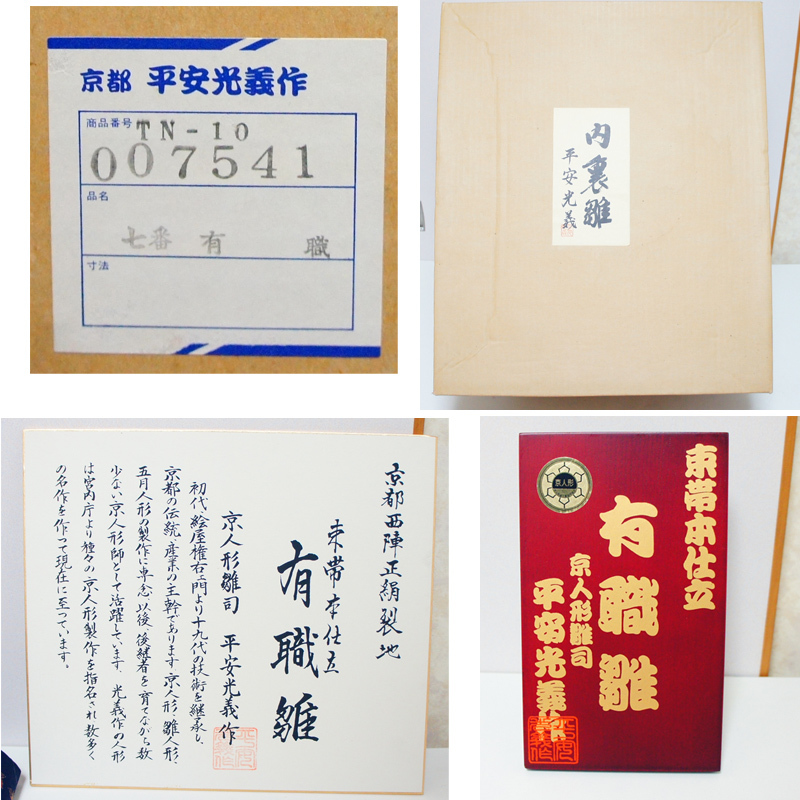 京都 平安光義作
商品番号 TN-10
007541
品名
七番 有 職
寸法
内裏雛
平安光義
京都西陣正絹裂地
束帯本仕立
有職雛
京人形雛司 平安光義作
初代、絵屋権右ェ門より十九代の技術を継承し、
京都の伝統産業の主幹であります京人形、雛人形、
五月人形の製作に専念 以後、後継者を育てながら数
少ない京人形師として活躍しています。光義作の人形
は宮内庁より種々の京人形製作を指名され数多く
の名作を作って現在に至っています。
束帯本仕立
有職雛
京人形雛司
平安光義作
京人形